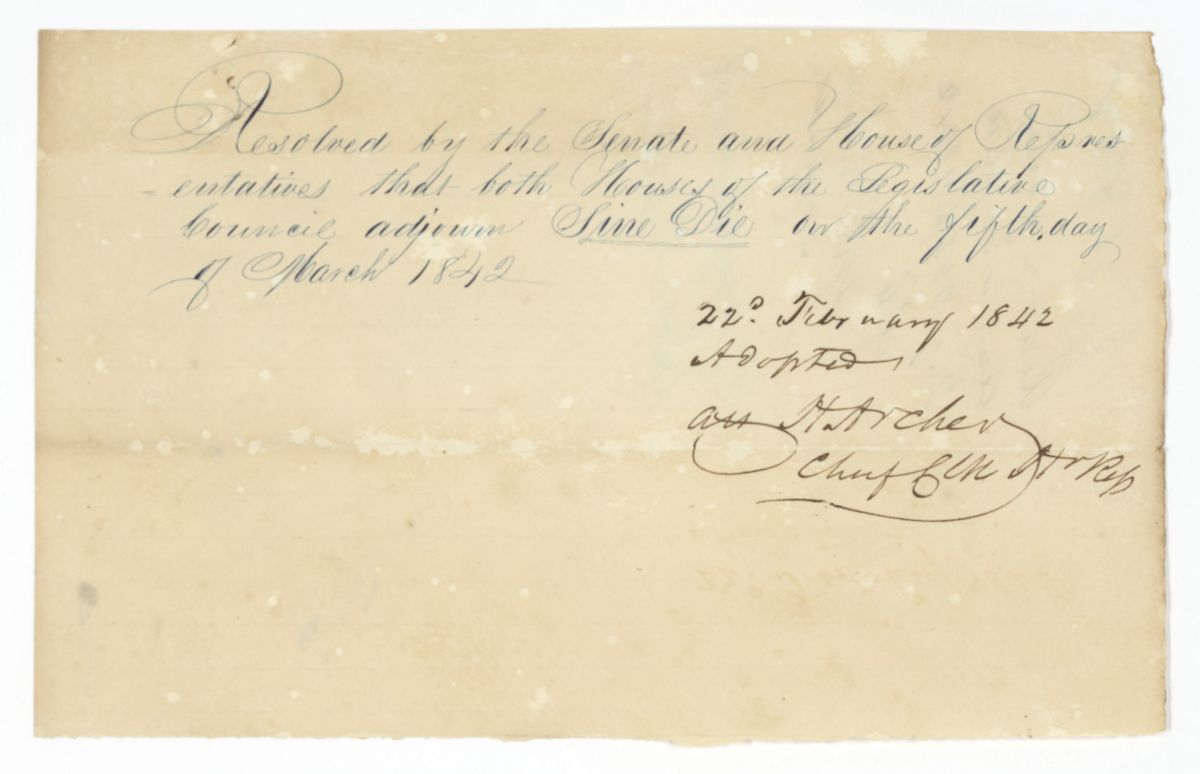 Resolved by the Senate and House of Repres
- entatives that both Houses of the Legislative
Council adjourn Sine Die on the fifth day
of March 1842
22d. February 1842
Adopted
att H. Archer
Chief Clk Ho Rep